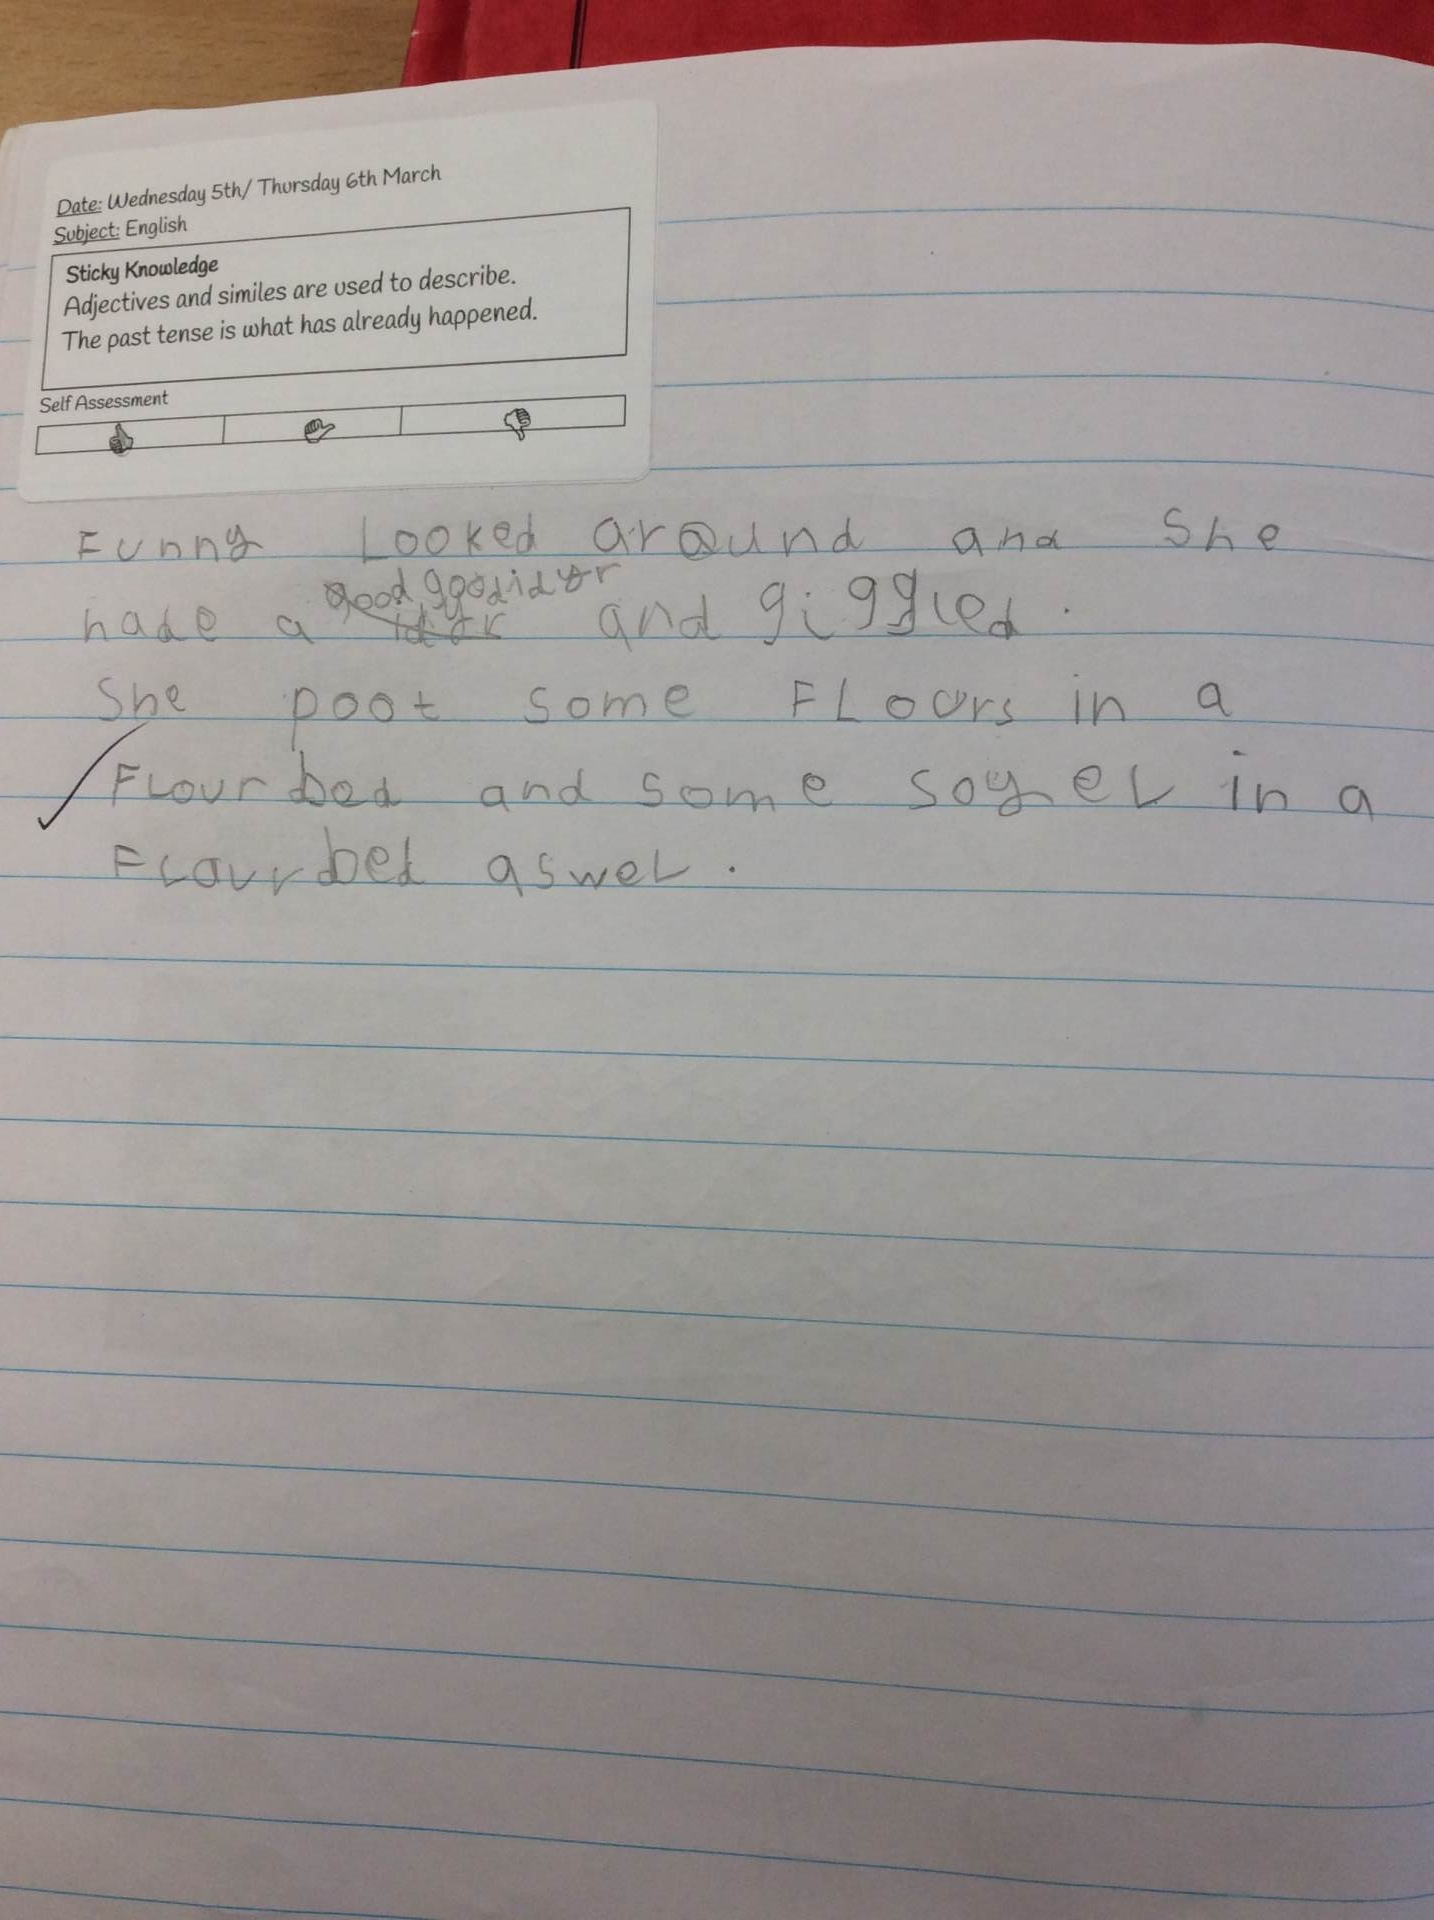 Date: Wednesday 5th/ Thursday 6th March
Subject: English
Sticky Knowledge
Adjectives and similes are used to describe.
The past tense is what has already happened.
Self Assessment
Funny Looked around and She
good goodider
hade a and giggled.
She poot some FLours in a
FLour bed and some soyel in a
FLour bed aswel.